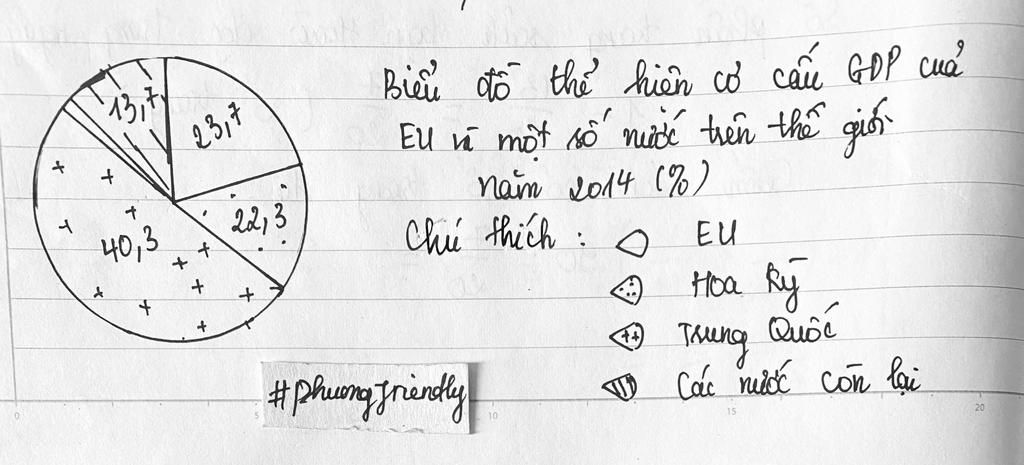 13,7
23,7
22,3
40,3
Biểu đồ thể hiện cơ cấu GDP của
EU và một số nước trên thế giới
năm 2014 (%)
Chú thích :
EU
Hoa Kỳ
Trung Quốc
Các nước còn lại
#phuongfriendly
0 5 10 15 20